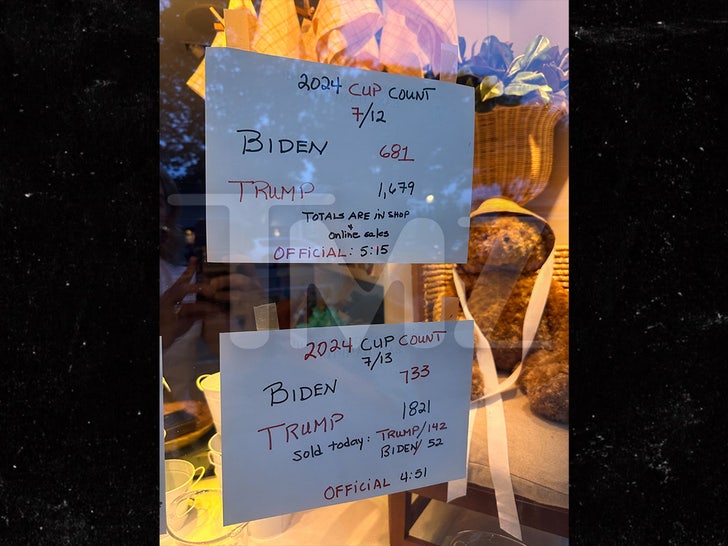 2024 CUP COUNT
7/12
BIDEN 681
TRUMP 1,679
TOTALS ARE IN SHOP
&
online sales
OFFICIAL: 5:15
TMZ
2024 CUP COUNT
7/13
BIDEN 733
TRUMP 1821
Sold today: TRUMP/142
BIDEN/ 52
OFFICIAL 4:51